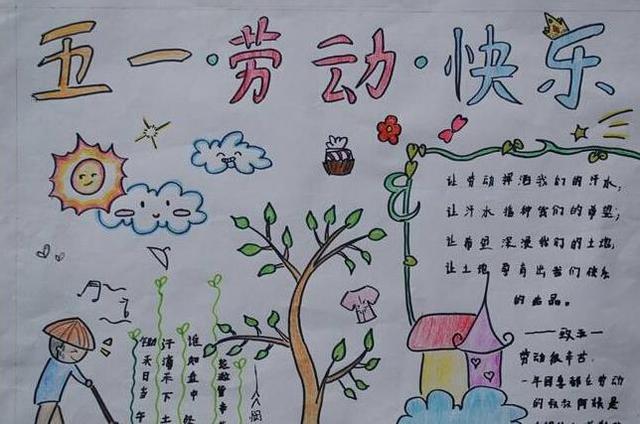 五一·劳动·快乐
让劳动挥洒我们的汗水,
让汗水播种我们的希望;
让希望深浸我们的土地,
让土地孕育出我们快乐
的出品。
——致五一
劳动很辛苦.
一年四季都在劳动
的叔叔阿姨是
锄禾日当午
汗滴禾下土
谁知盘中
粒粒皆辛